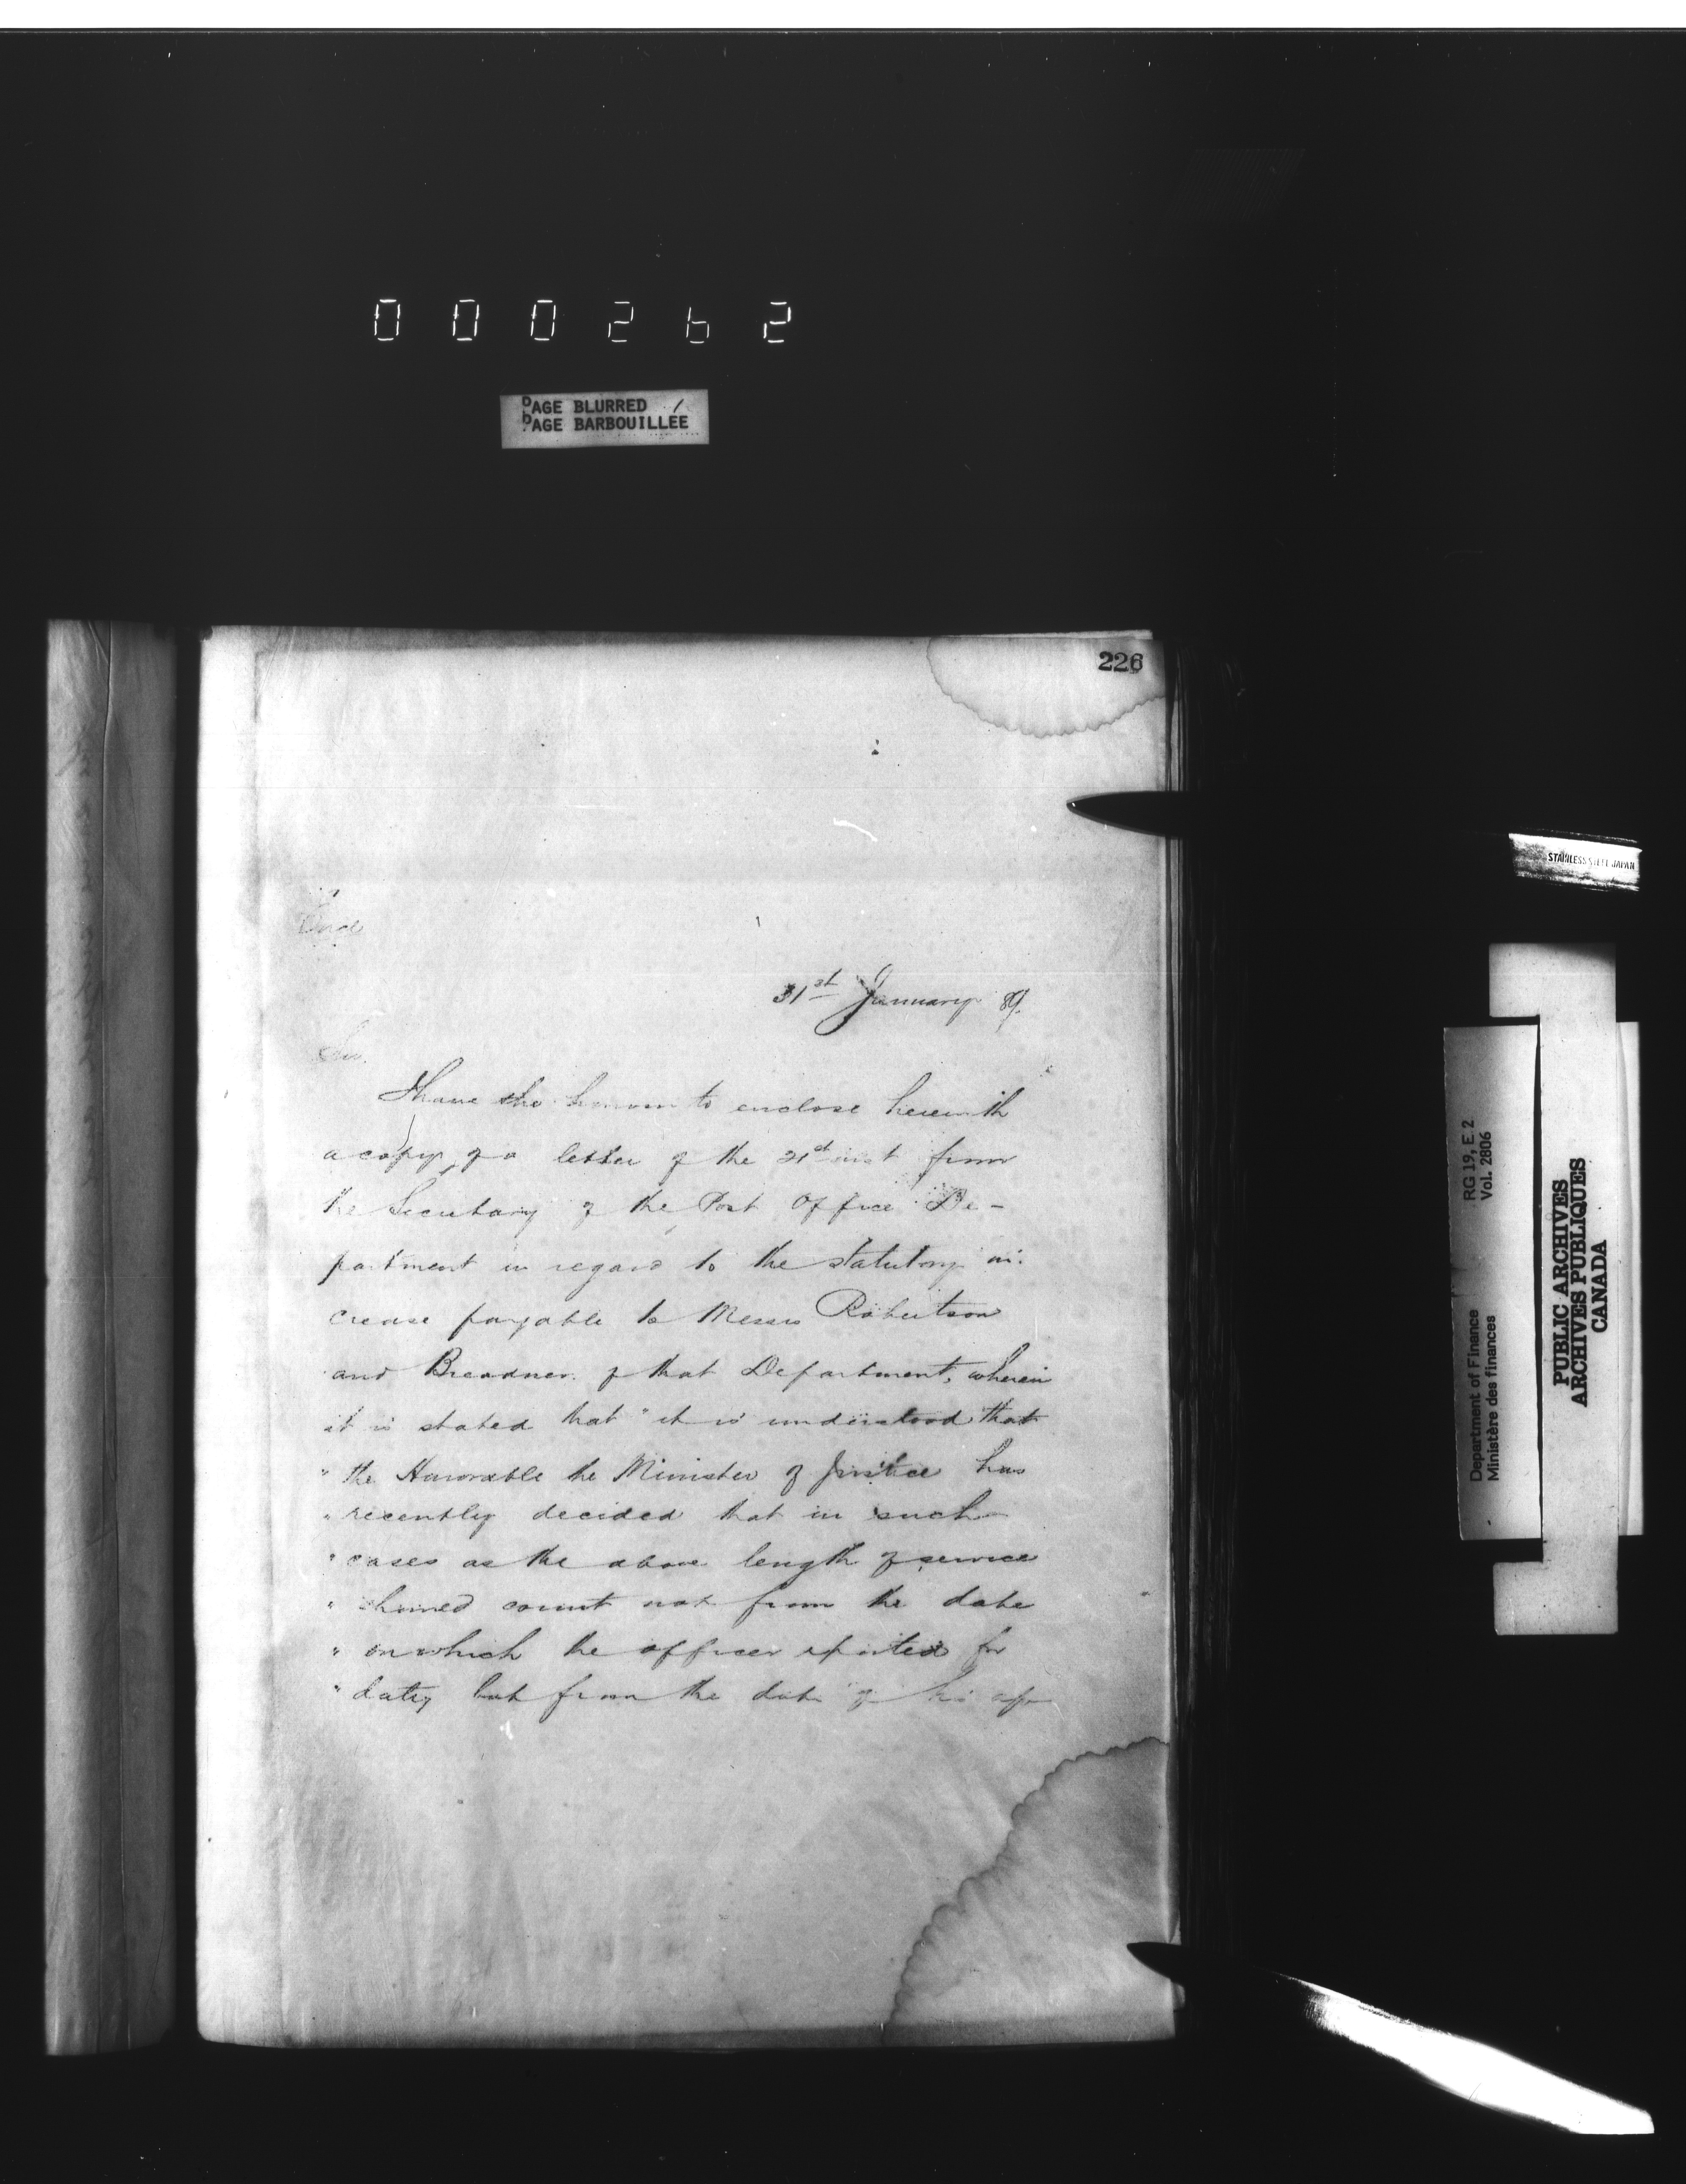 000262
PAGE BLURRED
PAGE BARBOUILLÉE
226
31st January 89.
Sir.
I have the honour to enclose herewith
a copy of a letter of the 21st inst from
the Secretary of the Post Office De-
partment in regard to the statutory in-
crease payable to Messrs Robertson
and Breadner of that Department, wherein
it is stated that "it is understood that
" the Honorable the Minister of Justice has
" recently decided that in such
" cases as the above length of service
" should count not from the date
" on which the officer reported for
" duty but from the date of his ap
STAINLESS STEEL JAPAN
RG 19, E 2
Vol. 2806
Department of Finance
Ministère des finances
PUBLIC ARCHIVES
ARCHIVES PUBLIQUES
CANADA